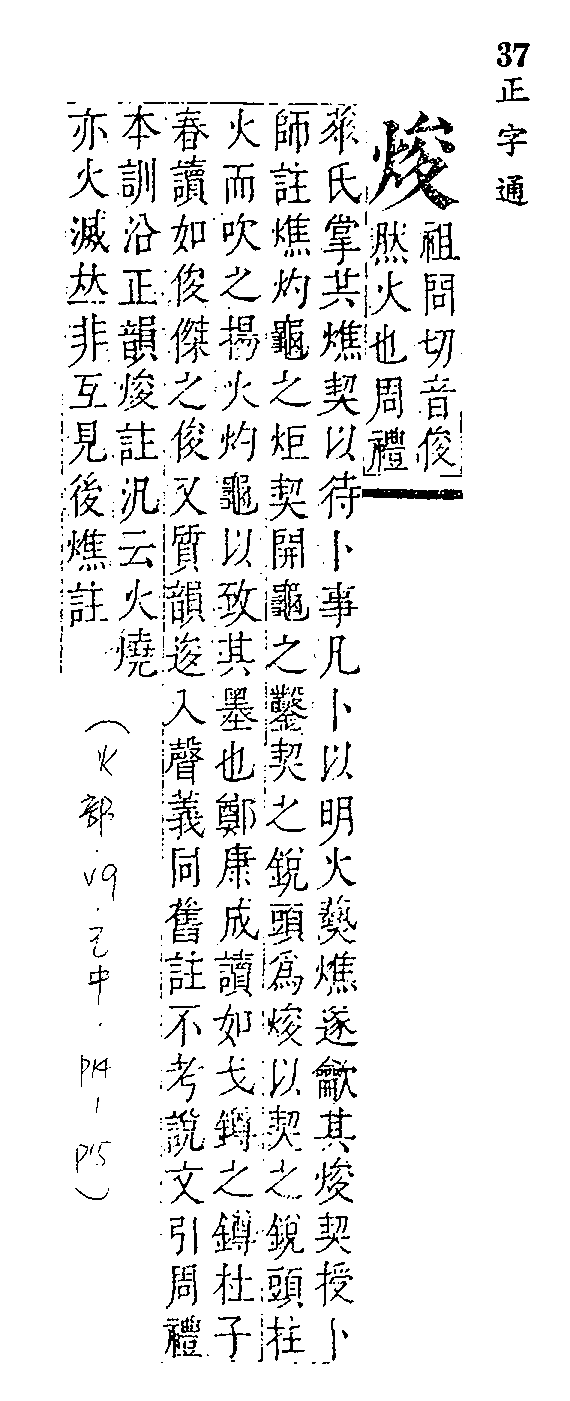 37 正字通
焌 祖悶切音俊
然火也周禮
菙氏掌共燋契以待卜事凡卜以明火爇燋遂龡其焌契授卜
師註燋灼龜之炬契開龜之鑿契之銳頭爲焌以契之銳頭拄
火而吹之揚火灼龜以致其墨也鄭康成讀如戈鐏之鐏杜子
春讀如俊傑之俊又質韻逡入聲義同舊註不考說文引周禮
本訓沿正韻焌註汎云火燒
亦火滅𠀤非互見後燋註
(火部.V9.已中.P14-P15)